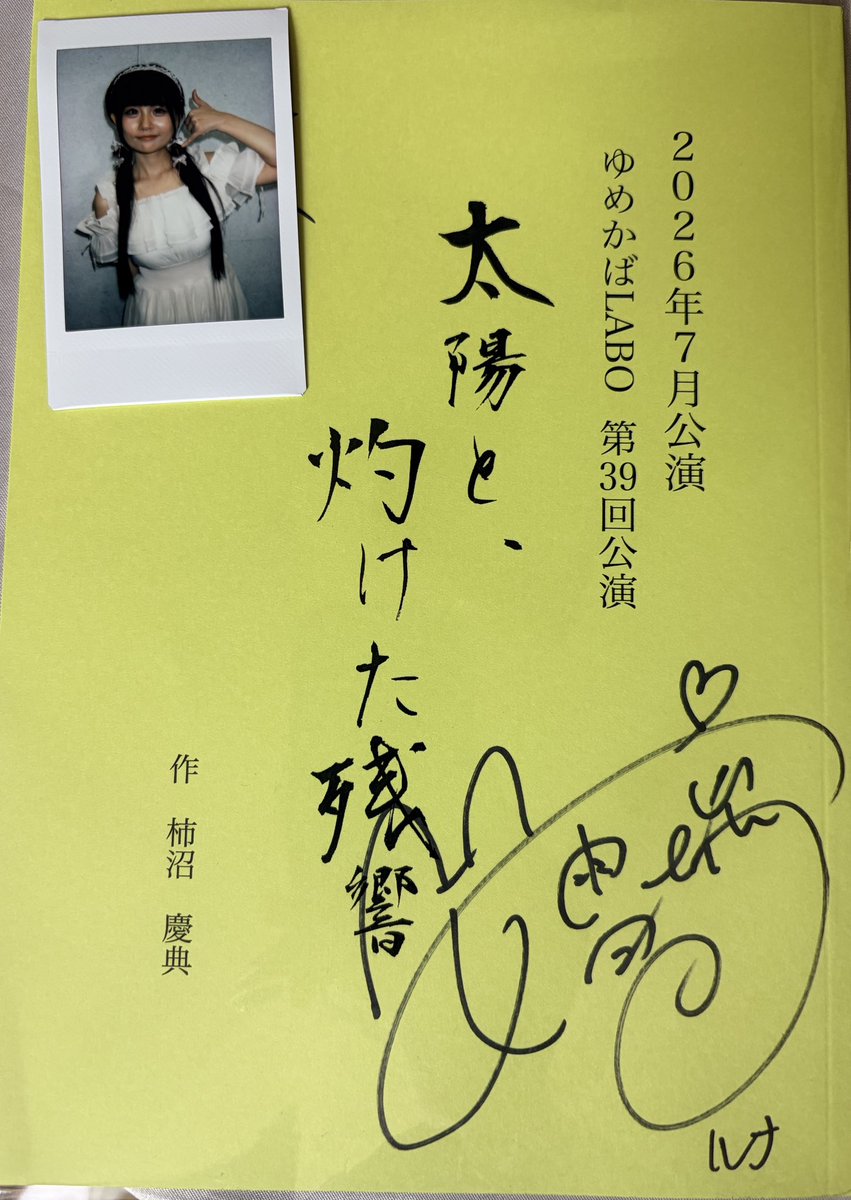 2026年7月公演
ゆめかばLABO 第39回公演
太陽と、
灼けた残響
作 柿沼 慶典
ルナ